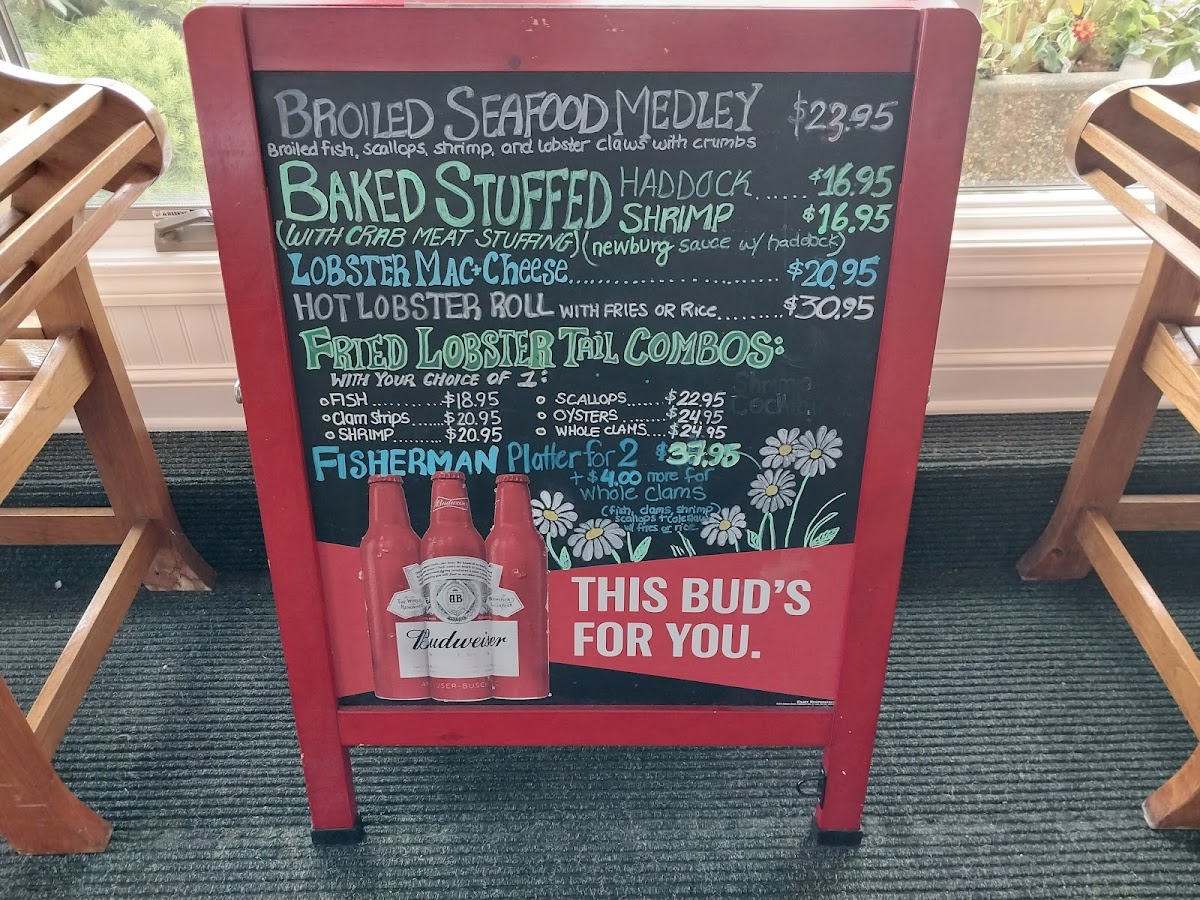 BROILED SEAFOOD MEDLEY $23.95
Broiled fish, scallops, shrimp, and lobster claws with crumbs
BAKED STUFFED HADDOCK...... $16.95
SHRIMP $16.95
(WITH CRAB MEAT STUFFING) (newburg sauce w/ haddock)
LOBSTER MAC + Cheese........................ $20.95
HOT LOBSTER ROLL WITH FRIES OR Rice........ $30.95
FRIED LOBSTER TAIL COMBOS:
WITH YOUR CHOICE OF 1:
FISH .......... $18.95
Clam strips ..... $20.95
SHRIMP......... $20.95
SCALLOPS...... $22.95
OYSTERS ....... $24.95
WHOLE CLAMS.... $24.95
Shrimp
FISHERMAN Platter for 2 $37.95
+ $4.00 more for
whole clams
(fish, clams, shrimp
scallops + coleslaw
w/ fries or rice
Budweiser
AB
Budweiser
THIS BUD'S
FOR YOU.